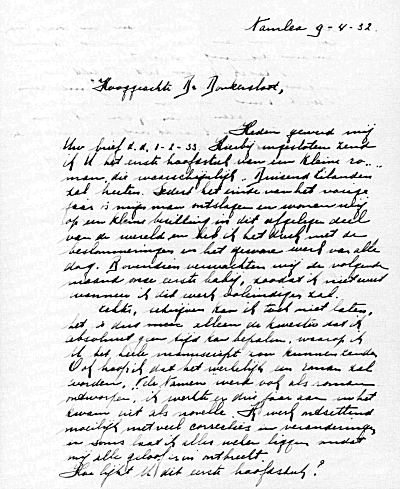 Namlea 9-4-32.
Hooggeachte Dr Donkersloot,
Heden gewerd mij
Uw brief d.d. 1-2-33. Hierbij ingesloten zend
ik U het eerste hoofdstuk van een kleine ro-
man, die waarschijnlijk "Duizend Eilanden"
zal heeten. Sedert het einde van het vorige
jaar is mijn man ontslagen en wonen wij
op een kleine bezitting in dit afgelegen deel
van de wereld en heb ik het druk met de
beslommeringen en het gewone werk van alle
dag. Bovendien verwachten wij de volgende
maand onze eerste baby, zoodat ik niet weet
wanneer ik dit werk voleindigen zal.
Echter, schrijven kan ik toch niet laten,
het is dus meer alleen de kwestie dat ik
absoluut geen tijd kan bepalen, waarop ik
U het heele manuscript zou kunnen zenden.
Ook hoop ik dat het werkelijk een roman zal
worden. werk ook als roman
ontworpen, ik werkte er drie jaar aan en het
kwam uit als novelle. Ik werk ontzettend
moeilijk met veel correcties en veranderingen
en soms laat ik alles weken liggen omdat
mij alle geloof er in ontbreekt.
Hoe lijkt U dit eerste hoofdstuk?